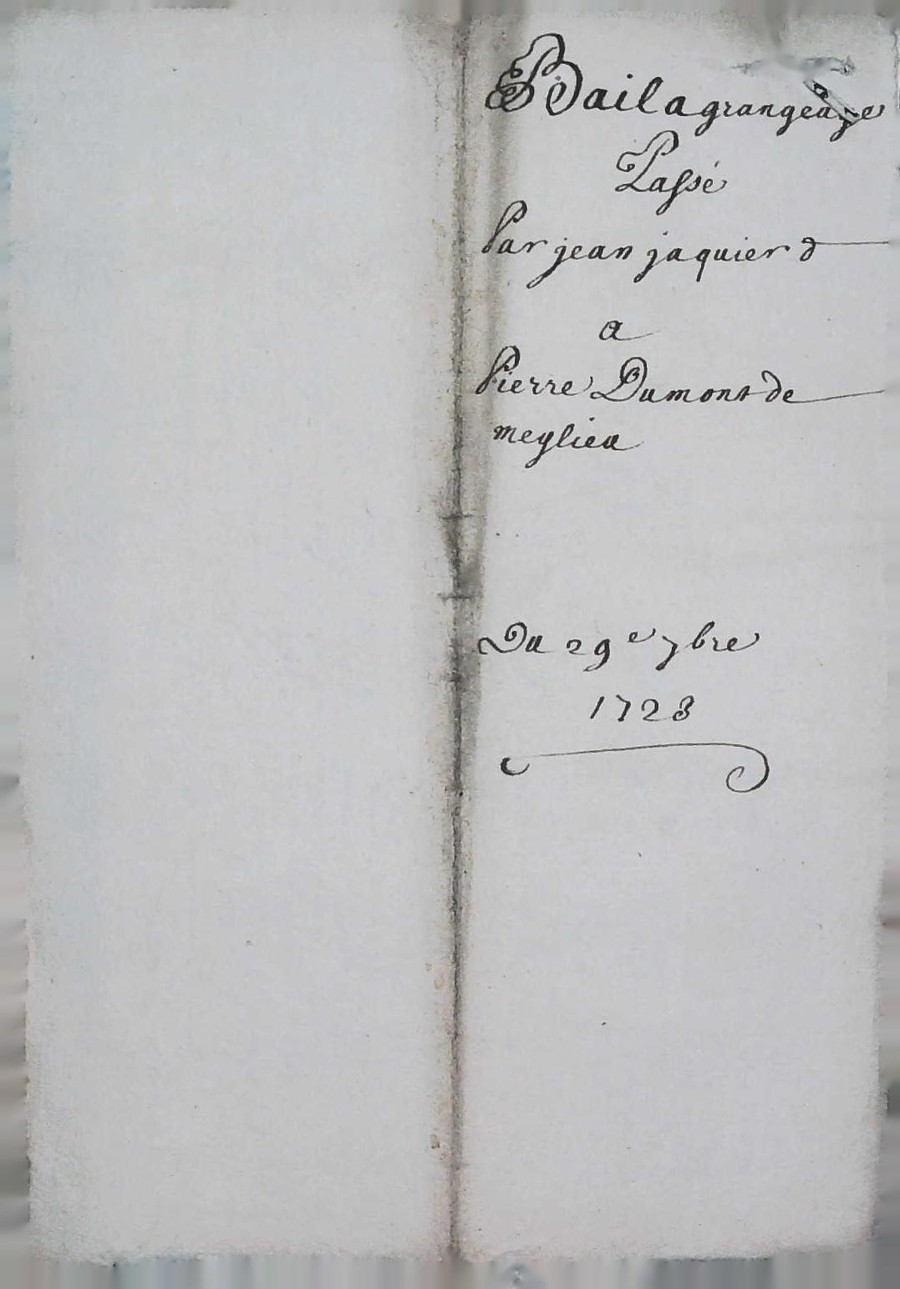 Bail a grangeage
Passé
Par jean jaquier d
a
Pierre Dumont de
meylieu
Du 29e 7bre
1723